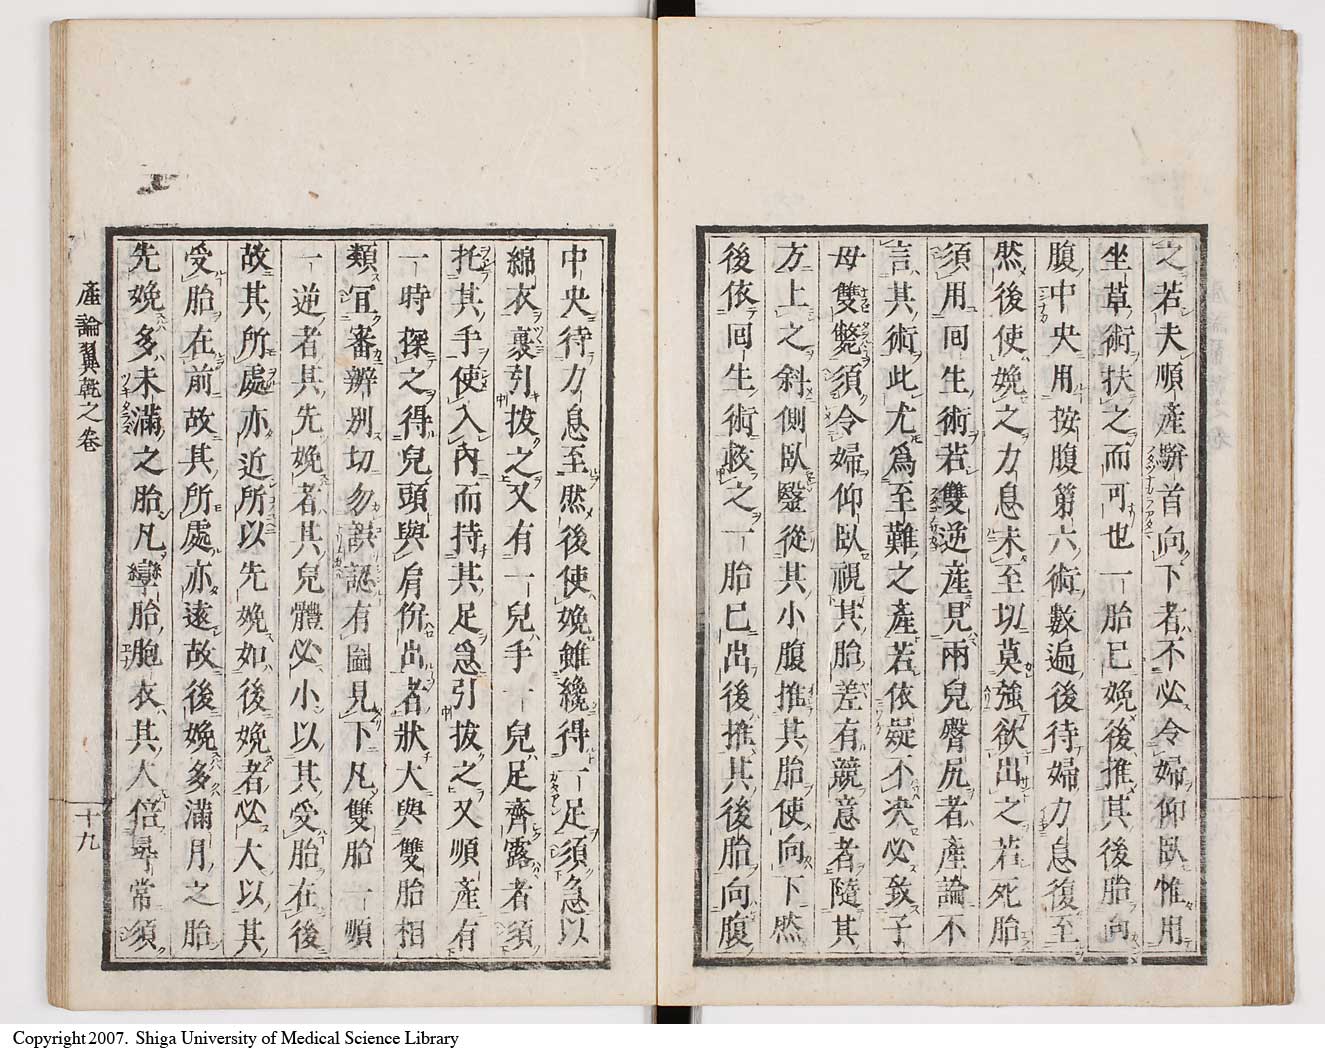 之若夫順產騈首向下者不必令婦仰臥惟用
坐草術扶之而可也一胎已娩後推其後胎向
腹中央用按腹第六術數遍後待婦力息復至
然後使娩之力息未至切莫強欲出之若死胎
須用回生術若雙逆產見兩兒臀尻者產論不
言其術此尤爲至難之產若依疑不决必致子
母雙斃須令婦仰臥視其胎差有競意者隨其
方上之斜側臥毉從其小腹推其胎使向下然
後依回生術救之一胎已出後推其後胎向腹
中央待力息至然後使娩雖纔得一足須急以
綿衣裹引拔之又有一兒手一兒足齊露者須
托其手使入內而持其足急引拔之又順產有
一時探之得兒頭與肩倂出者狀大與雙胎相
類宜審辨别切勿誤認有圖見下凡雙胎一順
一逆者其先娩者其兒體必小以其受胎在後
故其所處亦近所以先娩如後娩者必大以其
受胎在前故其所處亦遠故後娩多滿月之胎
先娩多未滿之胎凡孿胎胞衣其大倍尋常須
產論翼乾之卷
十九
Copyright 2007. Shiga University of Medical Science Library